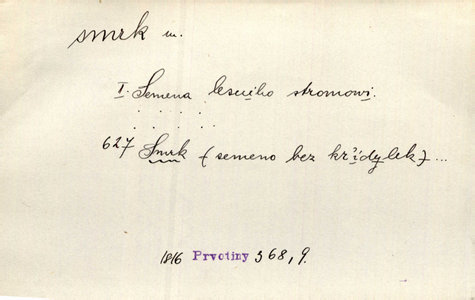 smrk m.
I. Semena lesního stromowí.
. . . . . .
627 Smrk (semeno bez křidylek) ...
1816 Prvotiny 368, 9.